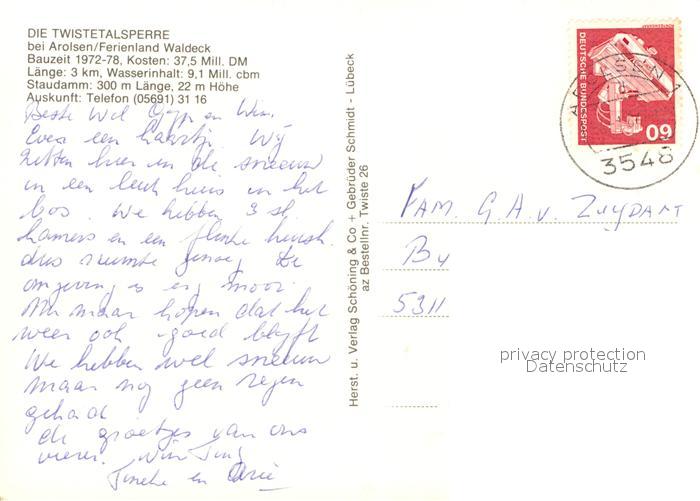 DIE TWISTETALSPERRE
bei Arolsen/Ferienland Waldeck
Bauzeit 1972-78, Kosten: 37,5 Mill. DM
Länge: 3 km, Wasserinhalt: 9,1 Mill. cbm
Staudamm: 300 m Länge, 22 m Höhe
Auskunft: Telefon (05691) 31 16
Beste Wil en Wim.
Even een kaartje. Wij
zitten hier in de sneeuw
in een leuk huis in het
bos. We hebben 3 sl.
kamers en een flinke
dus ruimte genoeg. De
omgeving is erg mooi.
Nu maar hopen dat het
weer ook goed blijft
We hebben wel sneeuw
maar nog geen regen
gehad.
de groetjes van ons
vieren. Wim
Tineke en Arie
Herst. u. Verlag Schöning & Co + Gebrüder Schmidt - Lübeck
az Bestellnr. Twiste 26
DEUTSCHE BUNDESPOST
60
3548
FAM. G. A. v. ZUYDAM
By
5311
privacy protection
Datenschutz